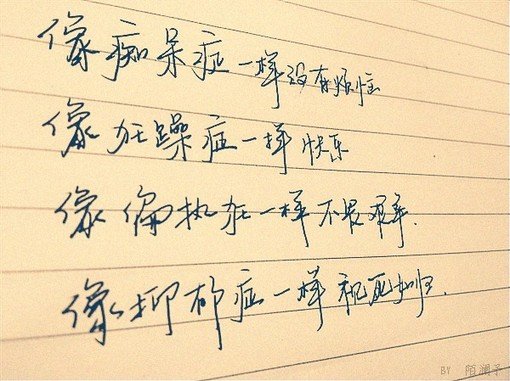 像痴呆症一样没有烦恼
像狂躁症一样快乐
像偏执症一样不畏艰辛.
像抑郁症一样视死如归.
BY 陌澜子